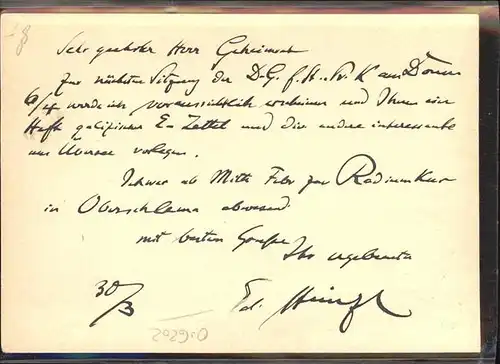 Sehr geehrter Herr Geheimrat
Zur nächsten Sitzung der D.G.f.H. u. Pr. K am Donn
6/4 werde ich voraussichtlich erscheinen und Ihnen ein
Heft galizischer E-Zettel und die andere interessante
aus Übersee vorlegen.
Ich war ab Mitte Febr zur Radiumkur
in Oberschlema abwesend.
mit besten Grüßen
Ihr ergebenster
30/3